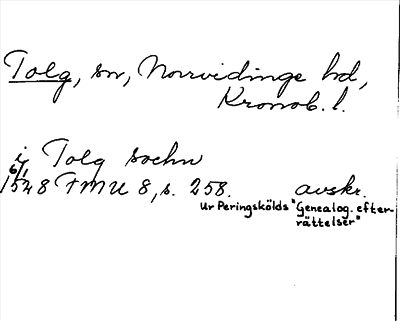 Tolg, sn, Norrvidinge hd,
Kronob. l.
i Tolg sochn
6/1
1548 FMU 8, s. 258. avskr.
ur Peringskölds "Genealog. efter-
rättelser"